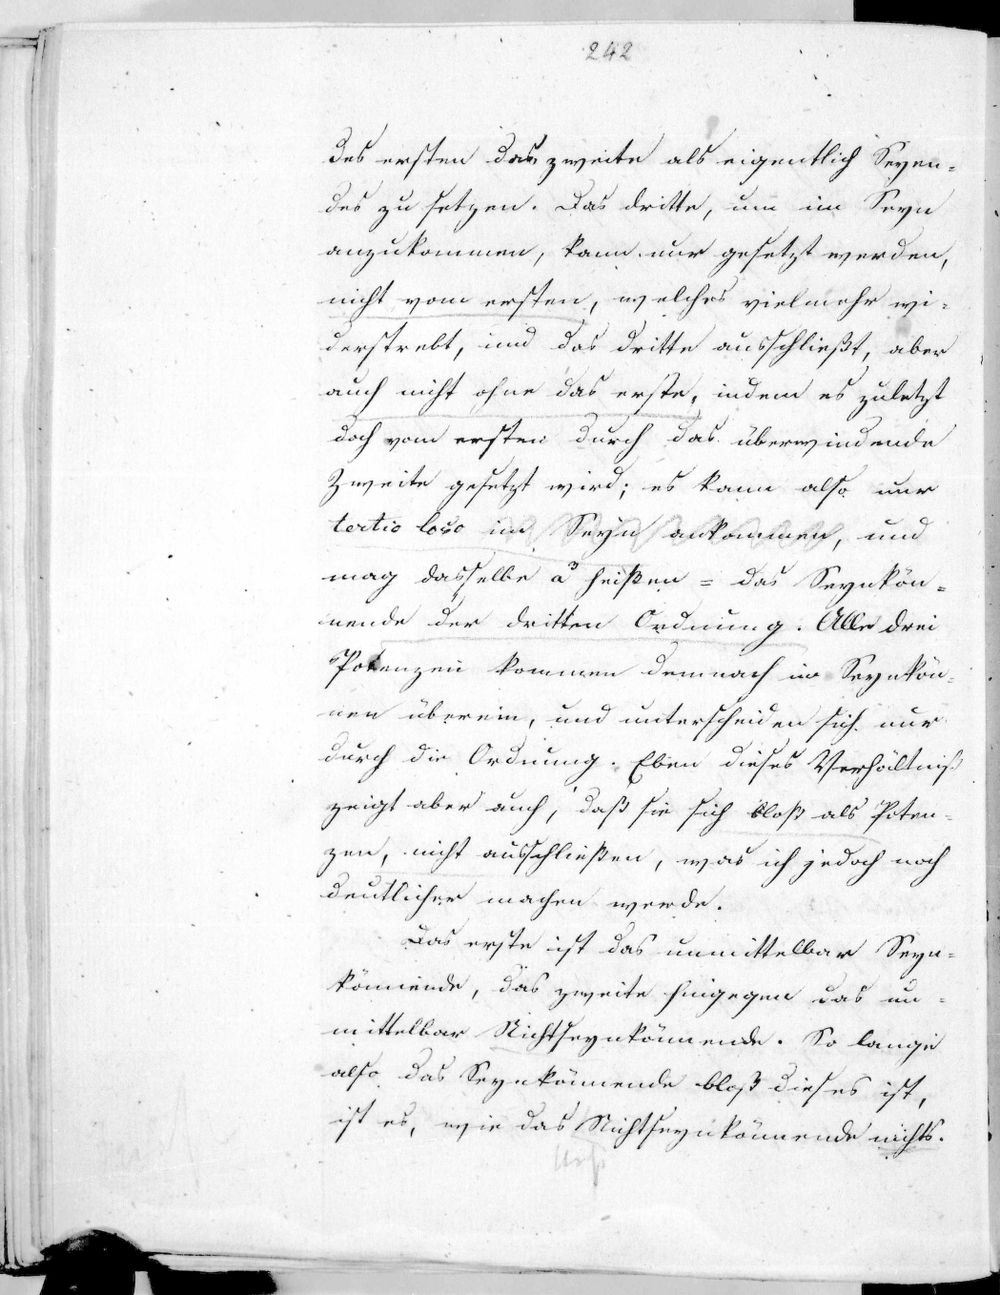 242
des ersten das zweite als eigentlich Seyen-
des zu setzen. Das dritte, um im Seyn
anzukommen, kann nur gesetzt werden,
nicht vom ersten, welches vielmehr wi-
derstrebt, und das dritte ausschließt, aber
auch nicht ohne das erste, indem es zuletzt
doch vom ersten durch das überwindende
Zweite gesetzt wird; es kann also nur
tertio loco im Seyn ankommen, und
mag dasselbe a³ heißen = das Seynkön-
nende der dritten Ordnung. Alle drei
Potenzen kommen demnach im Seynkön-
nen überein, und unterscheiden sich nur
durch die Ordnung. Eben dieses Verhältniß
zeigt aber auch, daß sie sich bloß als Poten-
zen, nicht ausschließen, was ich jedoch noch
deutlicher machen werde.
Das erste ist das unmittelbar Seyn-
könnende, das zweite hingegen das un-
mittelbar Nichtseynkönnende. So lange
also das Seynkönnende bloß dieses ist,
ist es, wie das Nichtseynkönnende nichts.